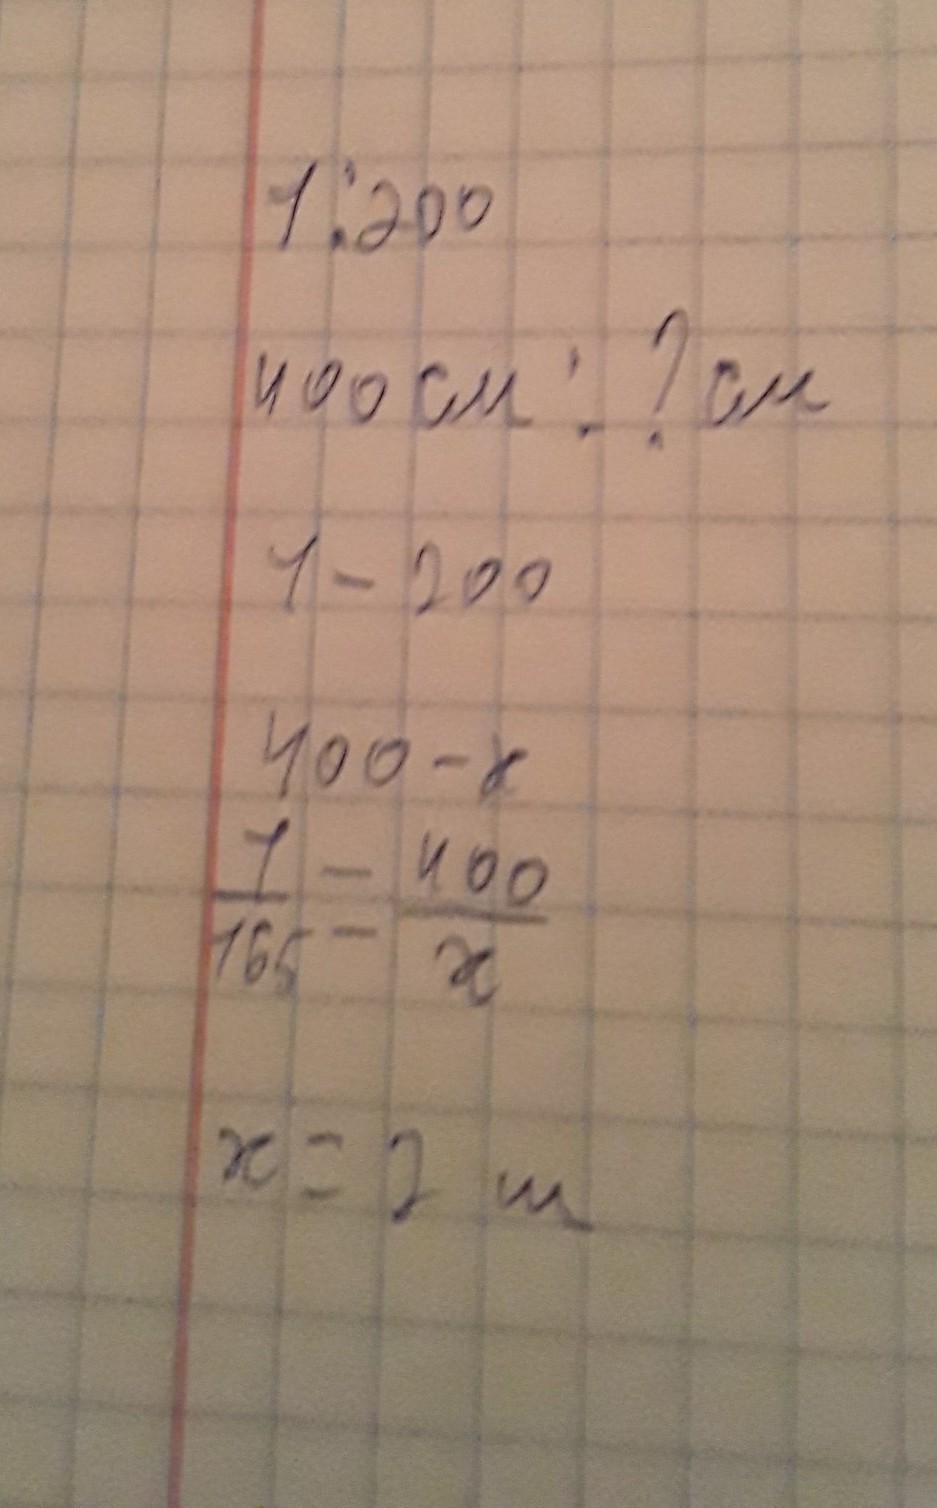 1:200
400 см : ? см
1 - 200
400 - x
1/165 = 400/x
x = 2 м